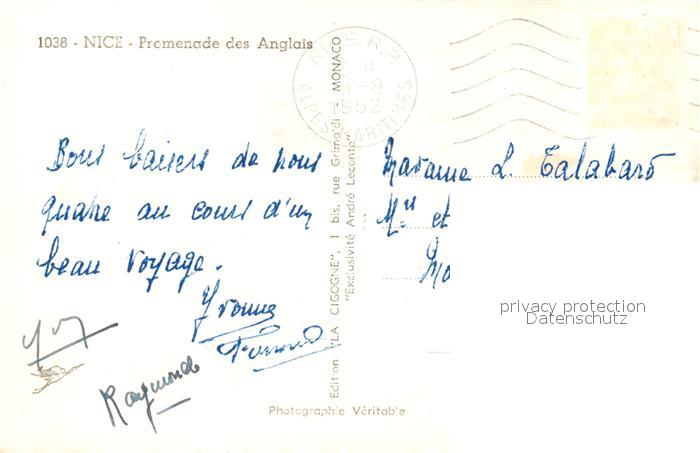 1038 - NICE - Promenade des Anglais
NICE R.P.
8
1952
ALPES MARITIMES
Bons baisers de nous
quatre au cours d'un
beau voyage.
Yvonne
Fernand
Raymonde
Edition "LA CIGOGNE", 1 bis, rue Grimaldi - MONACO
"Exclusivité André Leconte"
Madame L. Talabard
Mr et
Mo
privacy protection
Datenschutz
Photographie Véritable